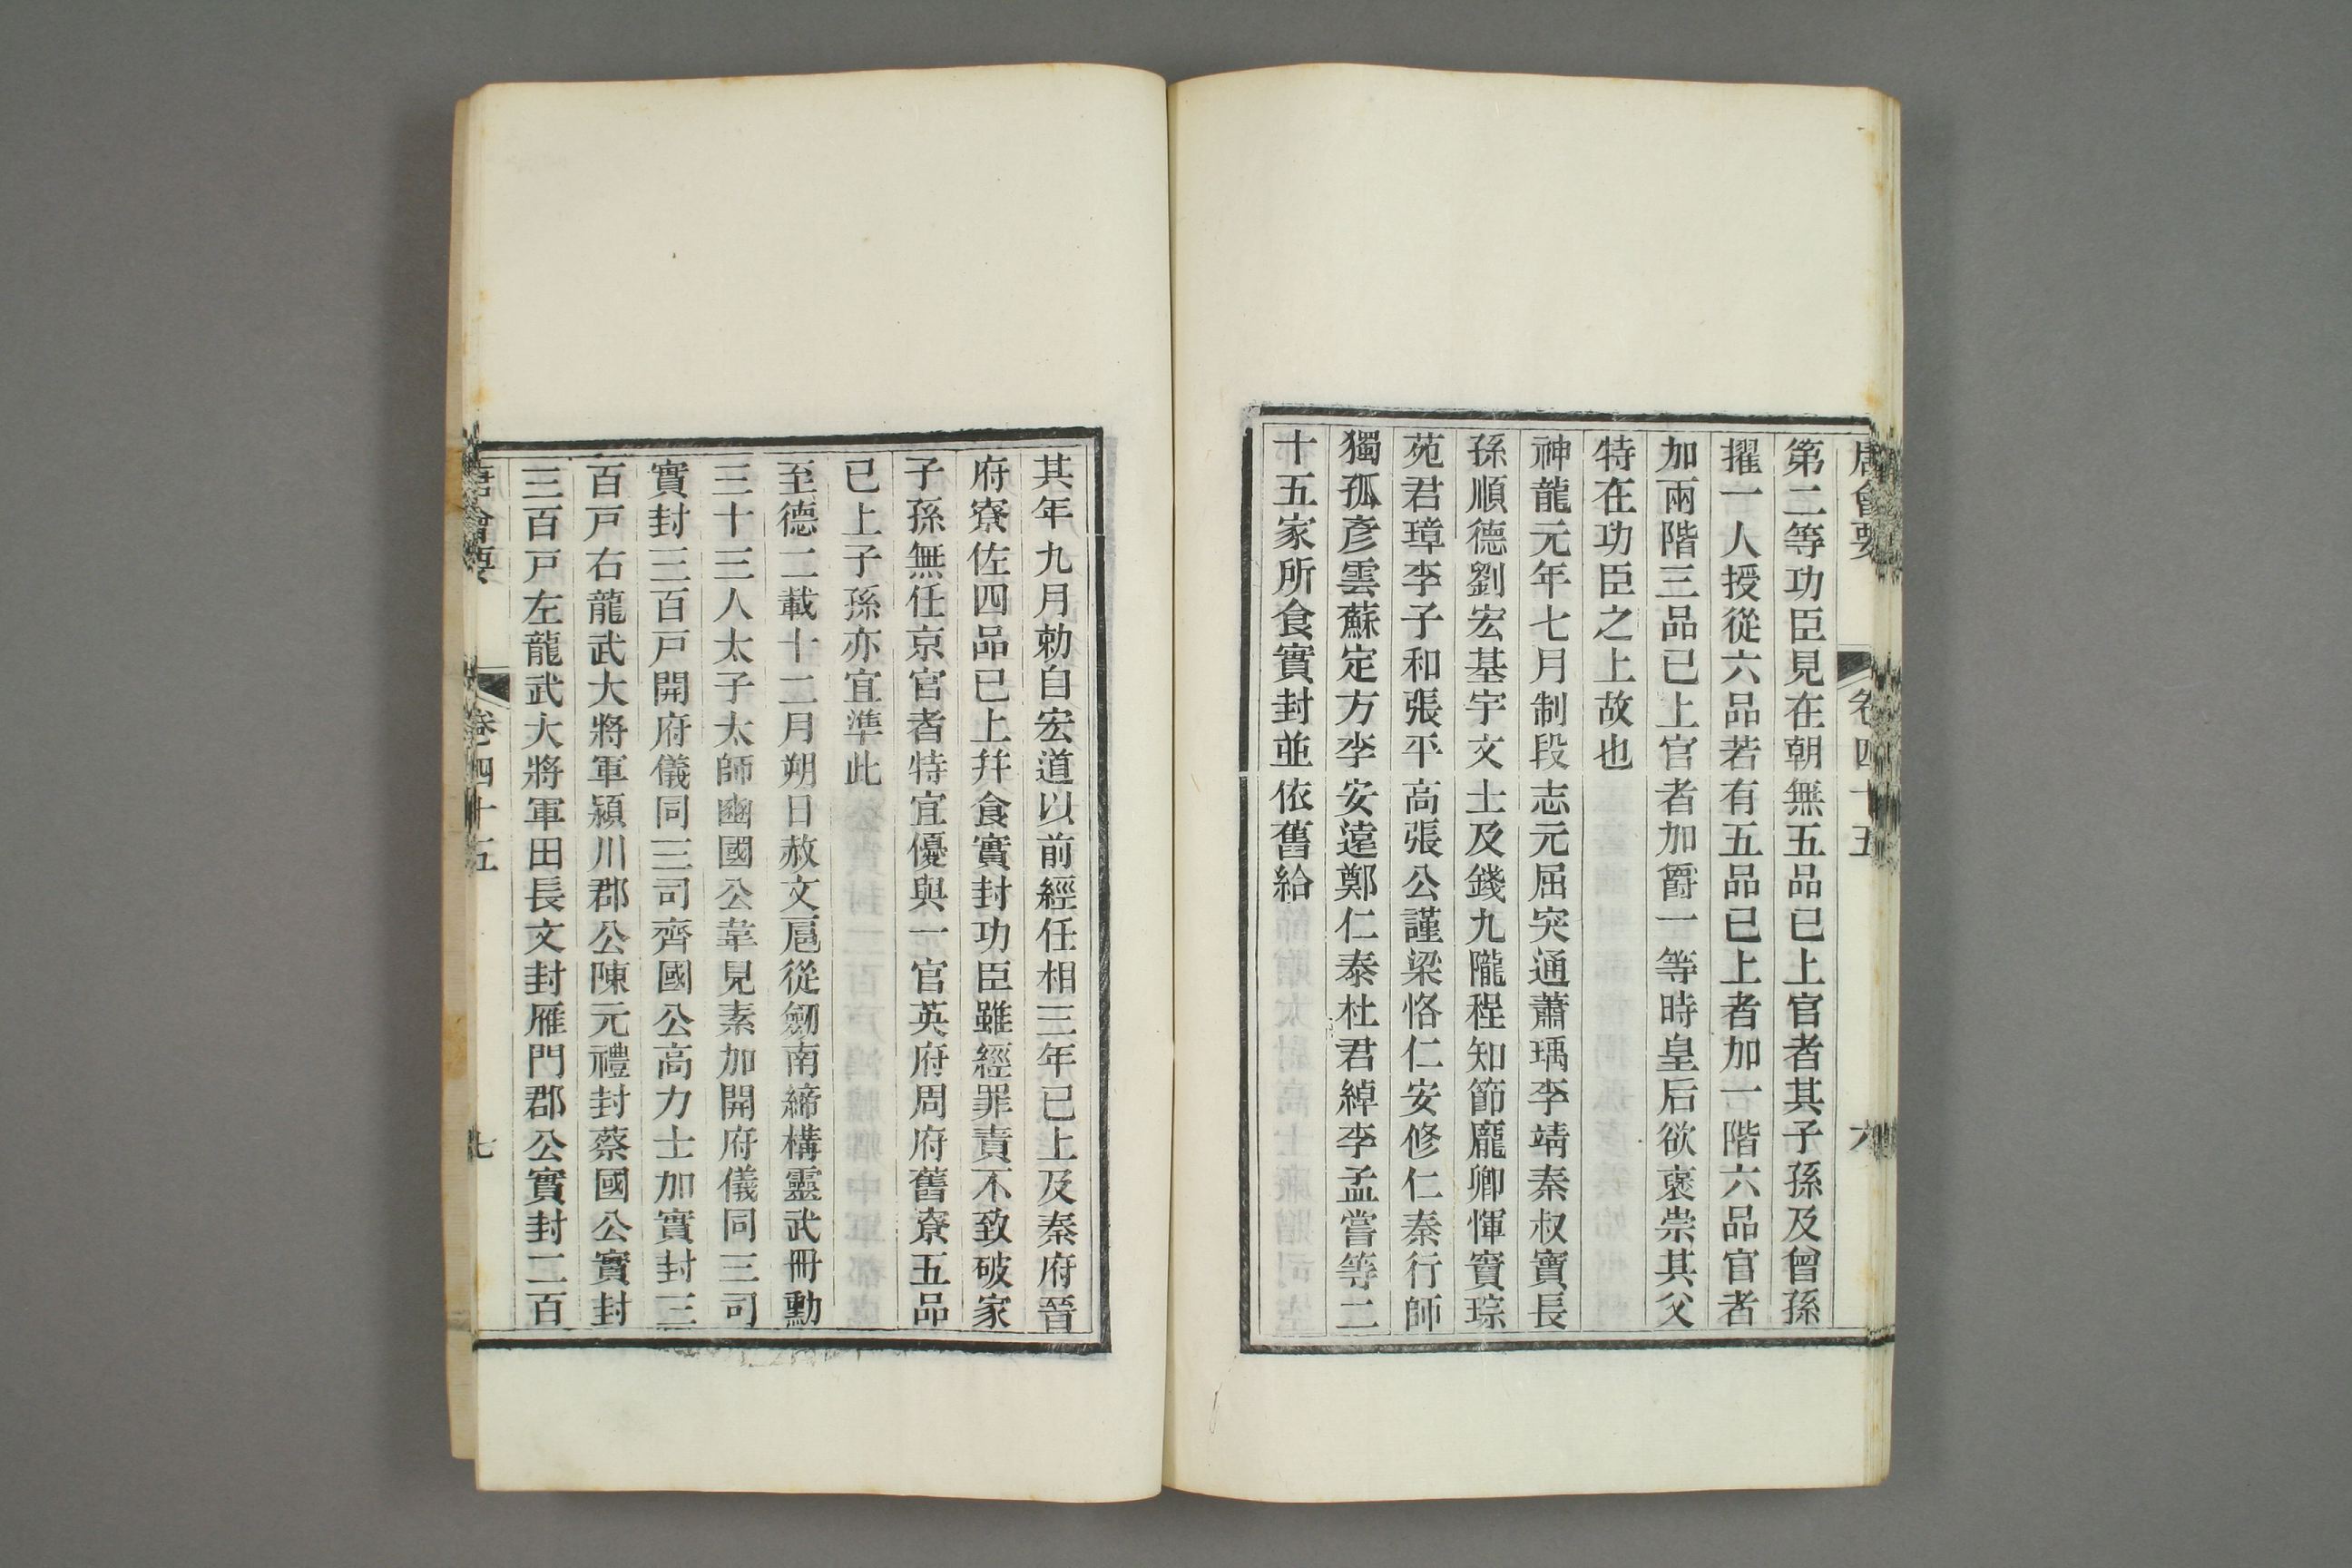 唐會要 卷四十五 六
第二等功臣見在朝無五品已上官者其子孫及曾孫
擢一人授從六品若有五品已上者加一階六品官者
加兩階三品已上官者加爵一等時皇后欲褒崇其父
特在功臣之上故也
神龍元年七月制段志元屈突通蕭瑀李靖秦叔寶長
孫順德劉宏基宇文士及錢九隴程知節龐卿惲竇琮
苑君璋李子和張平高張公謹梁恪仁安修仁秦行師
獨孤彥雲蘇定方李安遠鄭仁泰杜君綽李孟嘗等二
十五家所食實封並依舊給
其年九月勅自宏道以前經任相三年已上及秦府晉
府寮佐四品已上幷食實封功臣雖經罪責不致破家
子孫無任京官者特宜優與一官英府周府舊寮五品
已上子孫亦宜準此
至德二載十二月朔日赦文扈從劒南締構靈武冊勳
三十三人太子太師豳國公韋見素加開府儀同三司
實封三百戸開府儀同三司齊國公高力士加實封三
百戸右龍武大將軍潁川郡公陳元禮封蔡國公實封
三百戸左龍武大將軍田長文封雁門郡公實封二百
唐會要 卷四十五 七